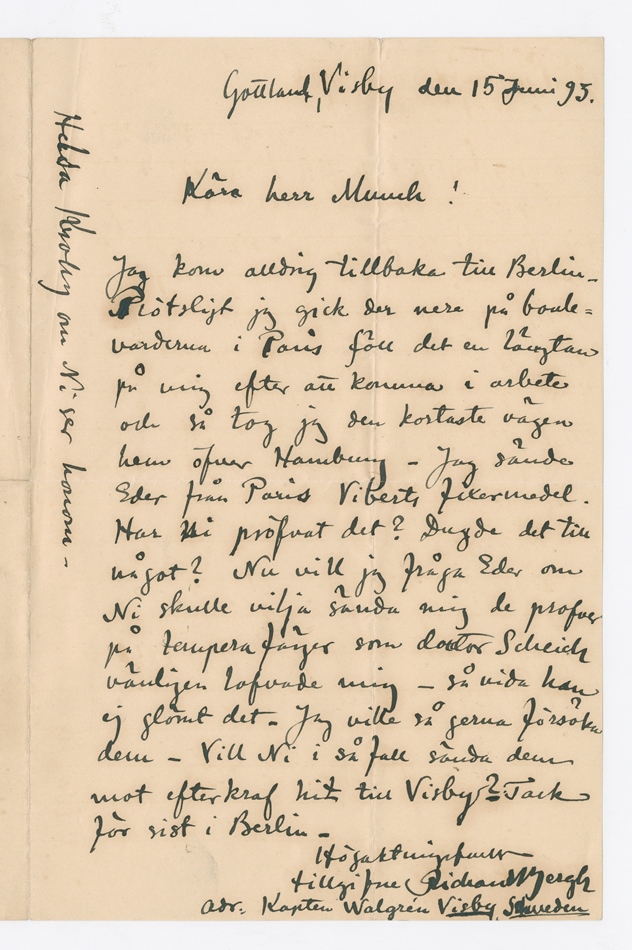 Gottland, Visby den 15 Juni 93.
Kära herr Munch!
Jag kom aldrig tillbaka till Berlin –
Plötsligt jag gick der nere på boule=
varderna i Paris föll det en längtan
på mig efter att komma i arbete
och så tog jag den kortaste vägen
hem öfver Hamburg – Jag sände
Eder från Paris Viberts fixermedel.
Har Ni pröfvat det? Dugde det till
något? Nu vill jag fråga Eder om
Ni skulle vilja sända mig de profver
på tempera färger som doktor Scheich
vänligen lofvade mig – så vida han
ej glömt det – Jag ville så gerna försöka
dem – Vill Ni i så fall sända dem
mot efterkraf hit till Visby? Tack
för sist i Berlin –
Högaktningsfullt
tillgifne Richard Bergh
adr. Kapten Walgrén Visby, Schweden
Helsa Krohg om Ni ser honom –